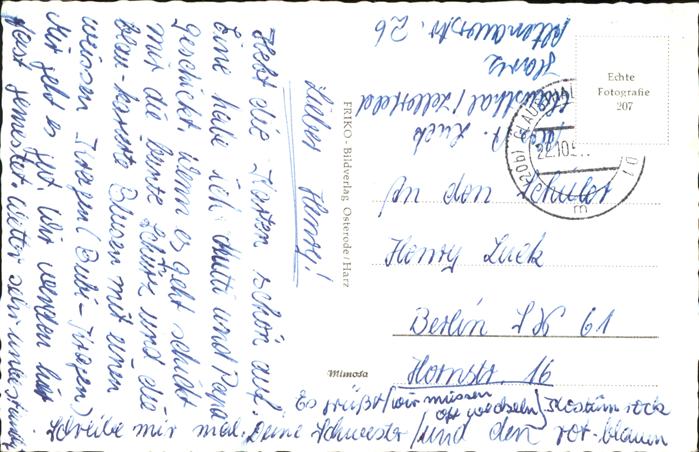 Lieber Henry!
Hebt die Karten schön auf.
Eine habe ich Mutti und Papa
geschickt. Wenn es geht schickt
mir die bunte Schürze und die
blau-karierte Blusen mit einen
weissen Kragen (Bubi-Kragen)
Mir geht es gut. Wir werden hier
fast gemästet. Wetter sehr unbeständig
Schreibe mir mal. Deine Schwester
Es grüßt
(wir müssen
oft wechseln)
Kostüm rock
und den rot-blauen
FRIKO - Bildverlag Osterode/Harz
Mimosa
Echte
Fotografie
207
Luck
Clausthal/Zellerfeld
Harz
Altenauerstr. 26
(20b) CLAUSTHAL
22.10.5
m
An den Schüler
Henry Luck
Berlin SW 61
Hornstr. 16